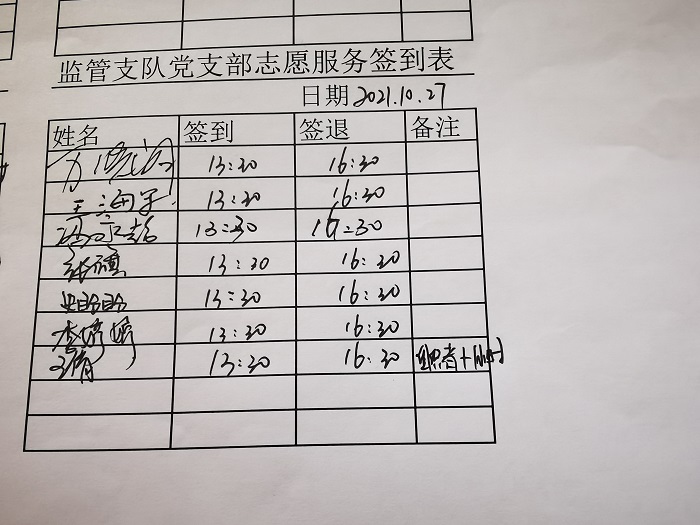 监管支队党支部志愿服务签到表
日期 2021.10.27
姓名 签到 签退 备注
13:30 16:30
王海军 13:30 16:30
13:30 16:30
张祺 13:30 16:30
史盼盼 13:30 16:30
李婷婷 13:30 16:30
13:30 16:30